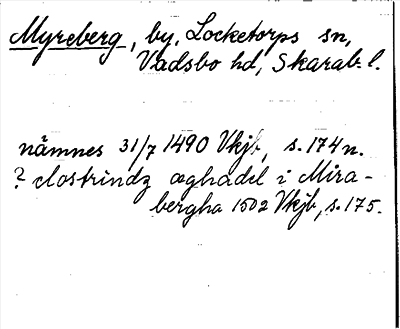 Myreberg, by, Locketorps sn,
Vadsbo hd, Skarab. l.
nämnes 31/7 1490 Vkjb, s. 174 n.
? clostrindz æghadel i Mira-
bergha 1502 Vkjb, s. 175.